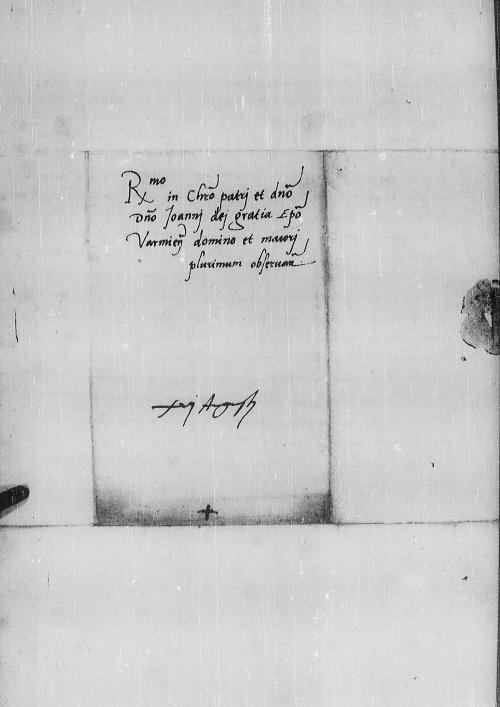 Rmo in Chrō patrj et dnō
Dnō Joannj dej gratia Epō
Varmieñ domino et maiorj
plurimum obseruañ